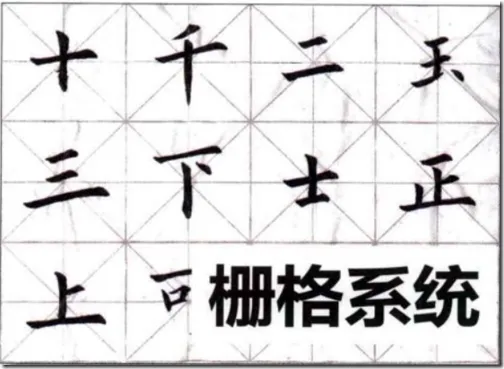 十千二玉
三下士正
上
栅格系统